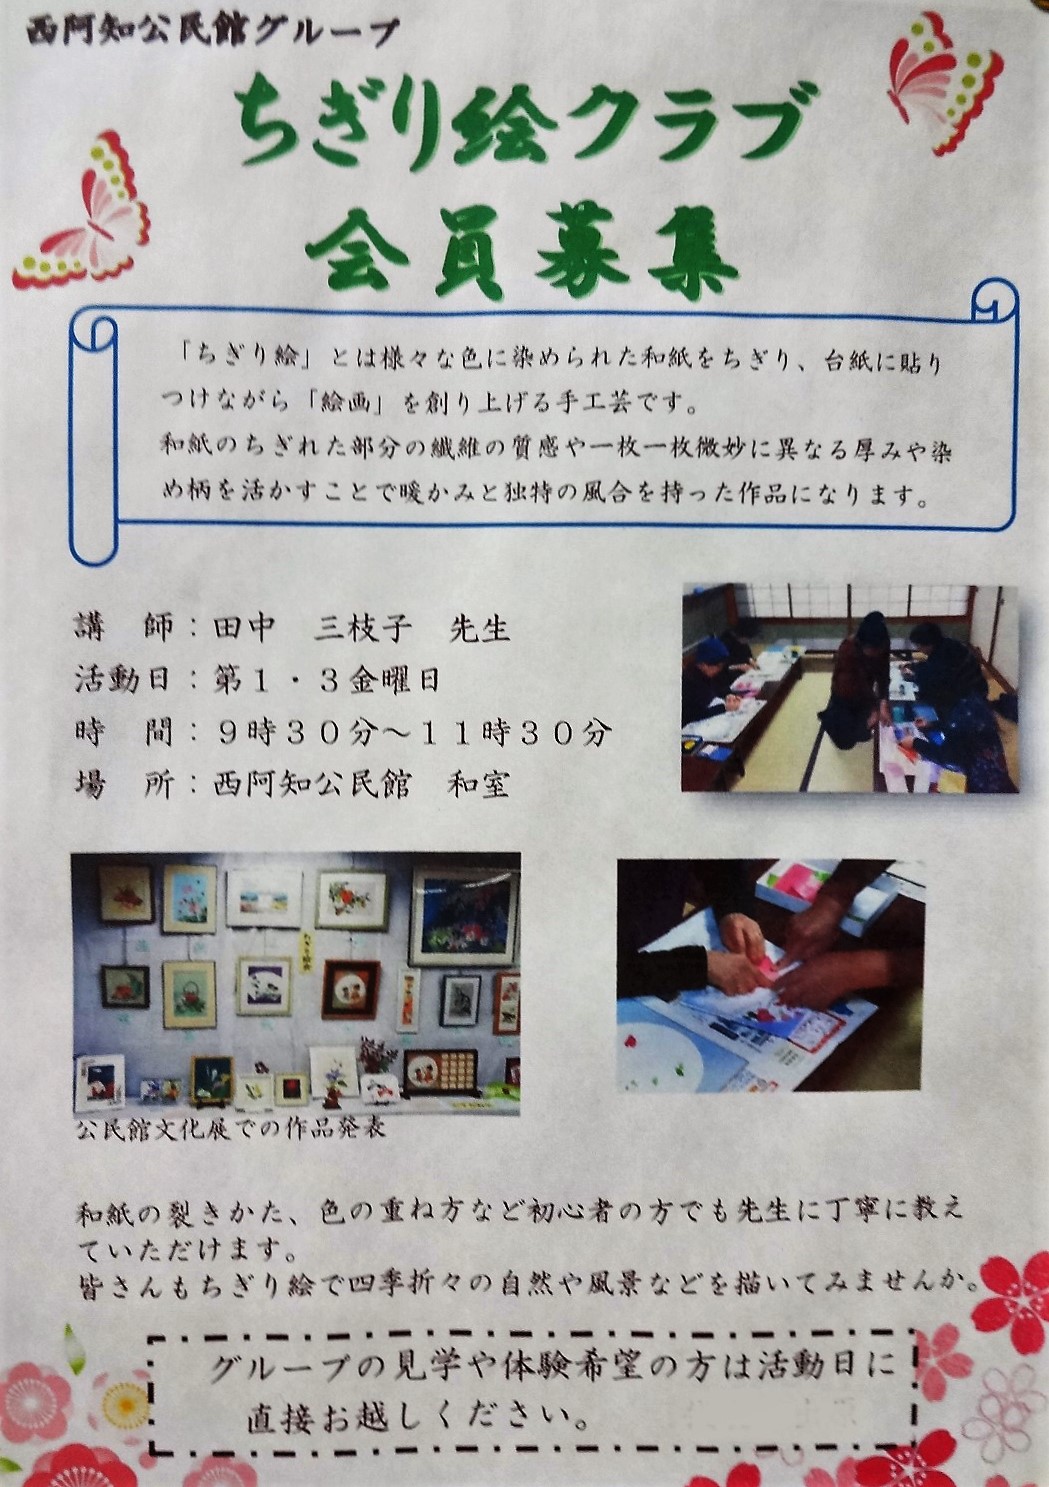 西阿知公民館グループ
ちぎり絵クラブ
会員募集
「ちぎり絵」とは様々な色に染められた和紙をちぎり、台紙に貼り
つけながら「絵画」を創り上げる手工芸です。
和紙のちぎれた部分の繊維の質感や一枚一枚微妙に異なる厚みや染
め柄を活かすことで暖かみと独特の風合を持った作品になります。
講　師：田中　三枝子　先生
活動日：第１・３金曜日
時　間：９時３０分～１１時３０分
場　所：西阿知公民館　和室
公民館文化展での作品発表
和紙の裂きかた、色の重ね方など初心者の方でも先生に丁寧に教え
ていただけます。
皆さんもちぎり絵で四季折々の自然や風景などを描いてみませんか。
グループの見学や体験希望の方は活動日に
直接お越しください。